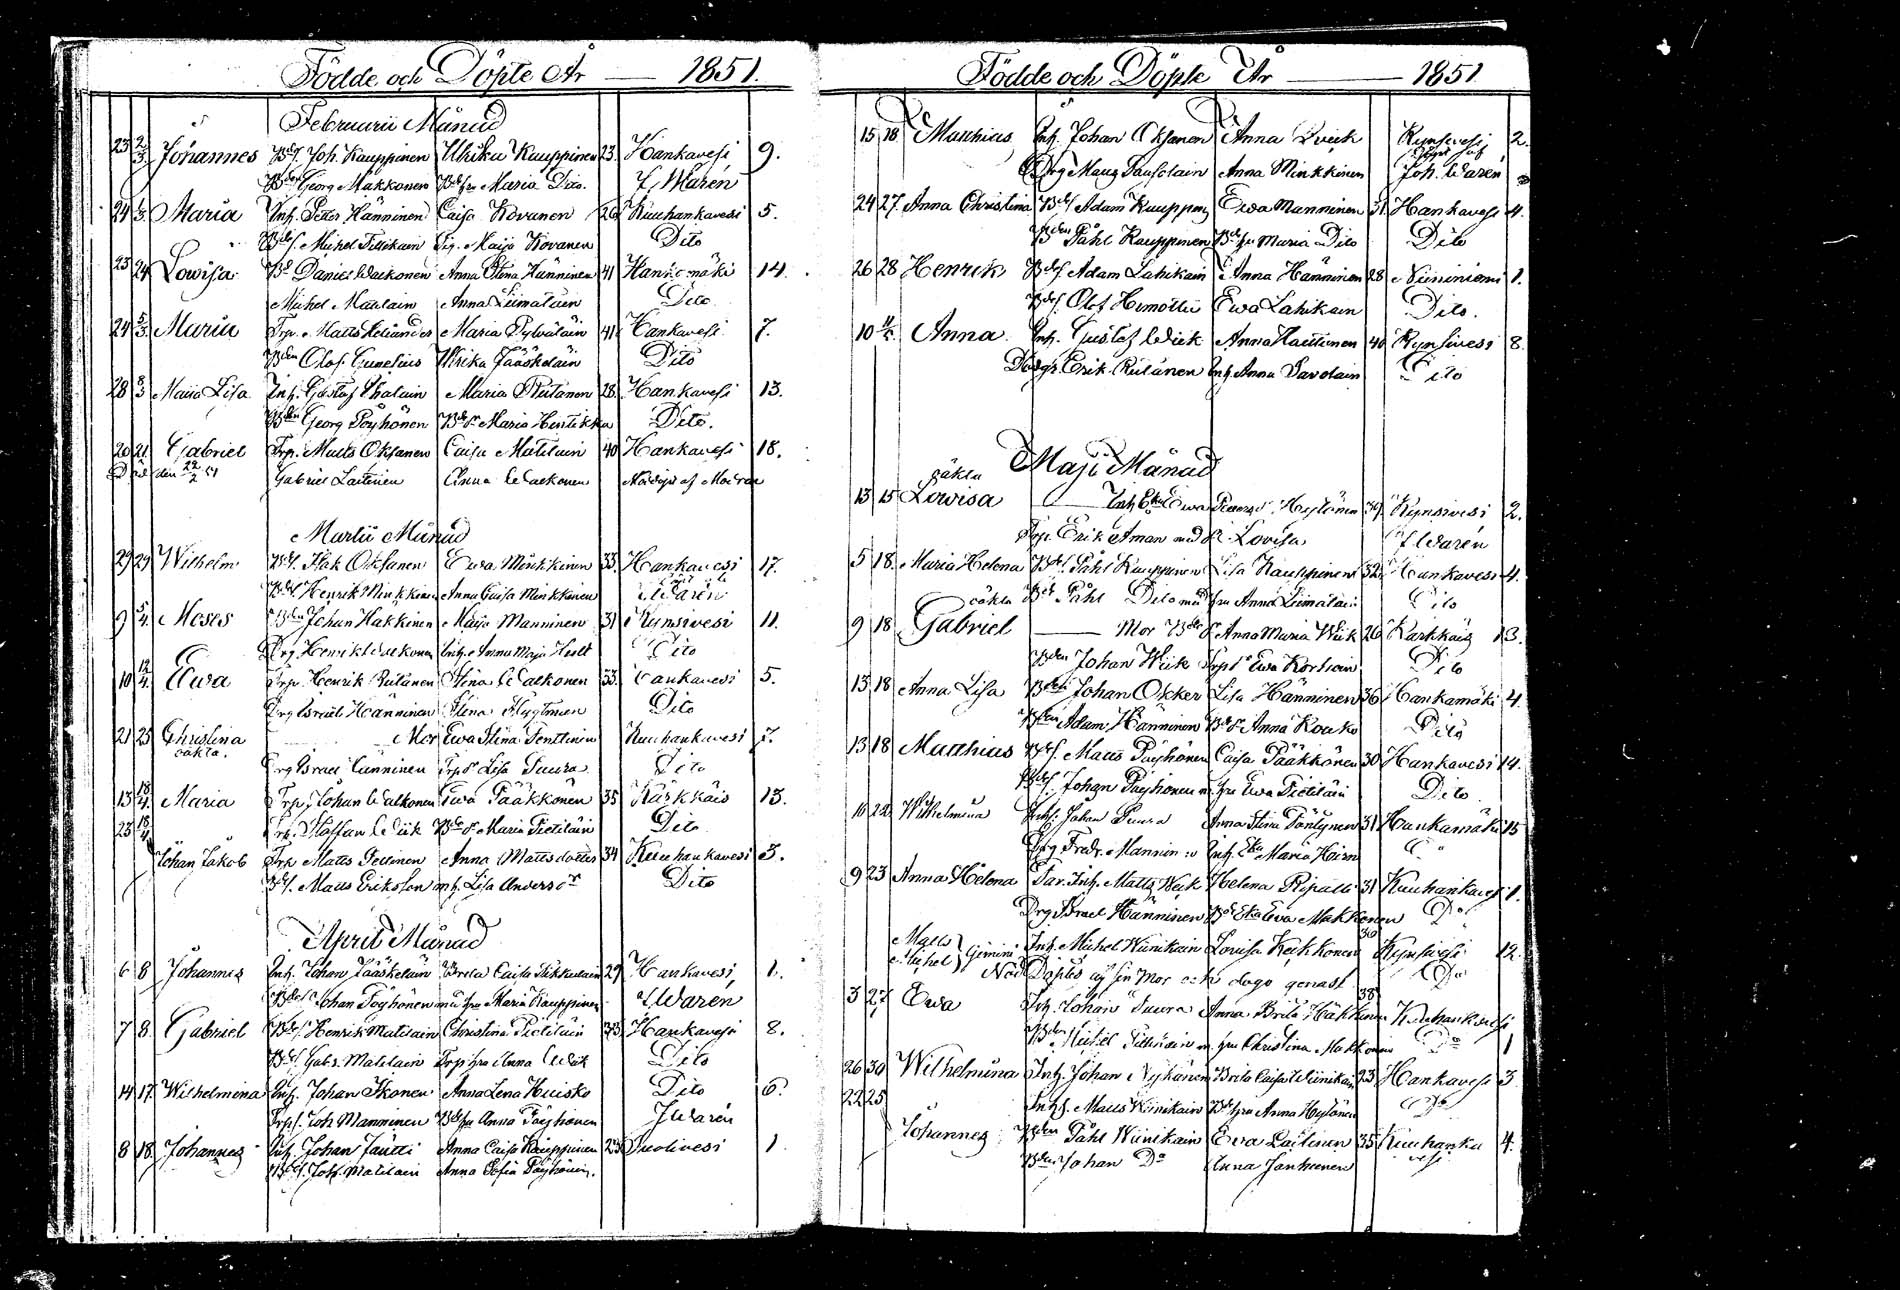 Födde och Döpte År — 1851.
Februarii Månad
23 2/3 Johannes Bds. Joh. Kauppinen Ulrika Kauppinen 23. Hankavesi 9.
Bden Georg Makkonen Bdehu Maria Dito. f. Warén
24 1/3 Maria Inh. Petter Hänninen Caisa Kovanen 26 Kuuhankavesi 5.
Bds. Michel Tillikain Pig. Maija Kovanen Dito
23 24 Lowisa Bd Daniel Walkonen Anna Stina Hänninen 41 Hankamäki 14.
Michel Maulain Anna Liimatain Dito
24 5/3 Maria Trp. Matts Helander Maria Pylväläin 41 Hankavesi 7.
Bden Olof Gunelius Ulrika Jääskeläin Dito
28 8/3 Maria Lisa Inh. Gustaf Ihalain Maria Riitanen 28. Hankavesi 13.
Bden Georg Pöyhönen Bdedr Maria Henlikka Dito.
20 21 Gabriel Trp. Matts Oksanen Caisa Matilain 40 Hankavesi 18.
Död den 22/2 51 Gabriel Laitinen Anna Walkonen Nöddöpt af Modran
Martii Månad
29 29 Wilhelm Bds. Isak Oksanen Ewa Minkkinen 33. Hankavesi 17.
Bds Henrik Minkkinen Anna Caisa Minkkinen Warén
9 5/4 Moses Bden Johan Hakkinen Maija Manninen 31 Kynsivesi 11.
Drg. Henrik Walkonen Inh. Anna Maja Hult Dito
10 12/4 Ewa Trp. Henrik Rutanen Stina Walkonen 33. Hankavesi 5.
Drg Israel Hänninen Stina Flygtman Dito
21 25 Christina Mor Ewa Stina Tenttinen Kuuhankavesi 7.
oäkta. Drg Israel Hänninen Trpdr Lisa Puura Dito
13 18/4 Maria Trp. Johan Walkonen Ewa Pääkkönen 35 Kärkkäis 13.
23 18/4 Trp. Staffan Wiik Bdedr Maria Pietiläin Dito
Johan Jakob Trp Matts Peltinen Anna Mattsdotter 34 Kuuhankavesi 3.
Bds. Matts Eriksson inh. Lisa Andersdr Dito
April Månad
6 8 Johannes Inh. Johan Jääskeläin Brita Caisa Tikkalain 29 Hankavesi 1.
Bden Johan Pöyhönen med hu Maria Kauppinen f. Warén
7 8 Gabriel Bds. Henrik Matilain Christina Pietiläin 43 Hankavesi 8.
Bds Gabr. Matilain Trp hu Anna Wiik Dito
14 17. Wilhelmina Inh. Johan Ikonen Anna Lena Huisko Dito 6.
Trps. Joh Manninen Bdehu Anna Pöyhönen J Warén
8 18 Johannes Inh. Johan Jäntti Anna Caisa Kauppinen 23 Suolivesi 1
Bds. Joh. Matilain Anna Sofia Pöyhönen.
Födde och Döpte År — 1851
15 18 Matthias Inh. Johan Oksanen Anna Qvick Kynsivesi 2.
Drg Maug Pausolain Anna Minkkinen Joh. Warén
24 27 Anna Christina Bds Adam Kauppinen Ewa Manninen 31 Hankavesi 4.
Bden Påhl Kauppinen Bdehu Maria Dito Dito
26 28 Henrik Bds Adam Lahikain Anna Hänninen 28 Niininiemi 1.
Bds. Olof Ewa Lahikain Dito.
10 Anna Inh. Gustaf Wiik Anna Hautunen 40 Kynsivesi 8.
Drg. Erik Rutanen Inh. Anna Savolain Dito
Maji Månad
oäkta
13 15 Lowisa — Inh Eka Ewa Heylönen 39 Kynsivesi 2.
Trp. Erik Åman med dr Lovisa f. Warén
5 18. Maria Helena Bds. Påhl Kauppinen Lisa Kauppinen 32 Hankavesi 4.
Bds Påhl Dito med hu Anna Liimatain Dito
oäkta
9 18 Gabriel — Mor Bdedr Anna Maria Wiik 26 Karkkäis 13.
Bden Johan Wiik Trpdr Ewa Kortsain Dito
13 18 Anna Lisa Bden Johan Okker Lisa Hänninen 36 Hankamäki 4
Bden Adam Hänninen Bdedr Anna Kouko Dito
13 18 Matthias Bds. Matts Pöyhönen Caisa Pääkkönen 30 Hankavesi 14.
Bds. Johan Pöyhönen m. hu Ewa Pietiläin Dito
16 22 Wilhelmina Inh. Johan Puura Anna Stina Pöntynen 31 Hankamäki 15
Drg Fredr. Mannin:n Inh. Eka Maria Hoisn
9 23 Anna Helena Tav. Inh. Matts Wiik Helena Ripatti 31 Kuuhankavesi 1.
Drg Israel Hänninen Bde Eka Eva Makkonen Do
Matts
Michel } Gemini Inh. Michel Wiinikain Lovisa Kekkonen 36 Kynsivesi 12
Nöd Döptes af sin Mor och dogo genast. Do
3 27 Ewa Inh. Johan Puura Anna Brita Häkkinen 38 Kuuhankavesi
Bden Michel Tillikain m. hu Christina Makkonen Do 1
26 30 Wilhelmina Inh. Johan Nykänen Brita Caisa Wiinikain 23 Hankavesi 3
Inhs. Matts Wiinikain Bdehu Anna Hytönen Do
22 25
Johannes Bden Påhl Wiinikain Ewa Laitinen 35 Kuuhanka 4.
vesi
Bden Johan Do Anna Janhunen